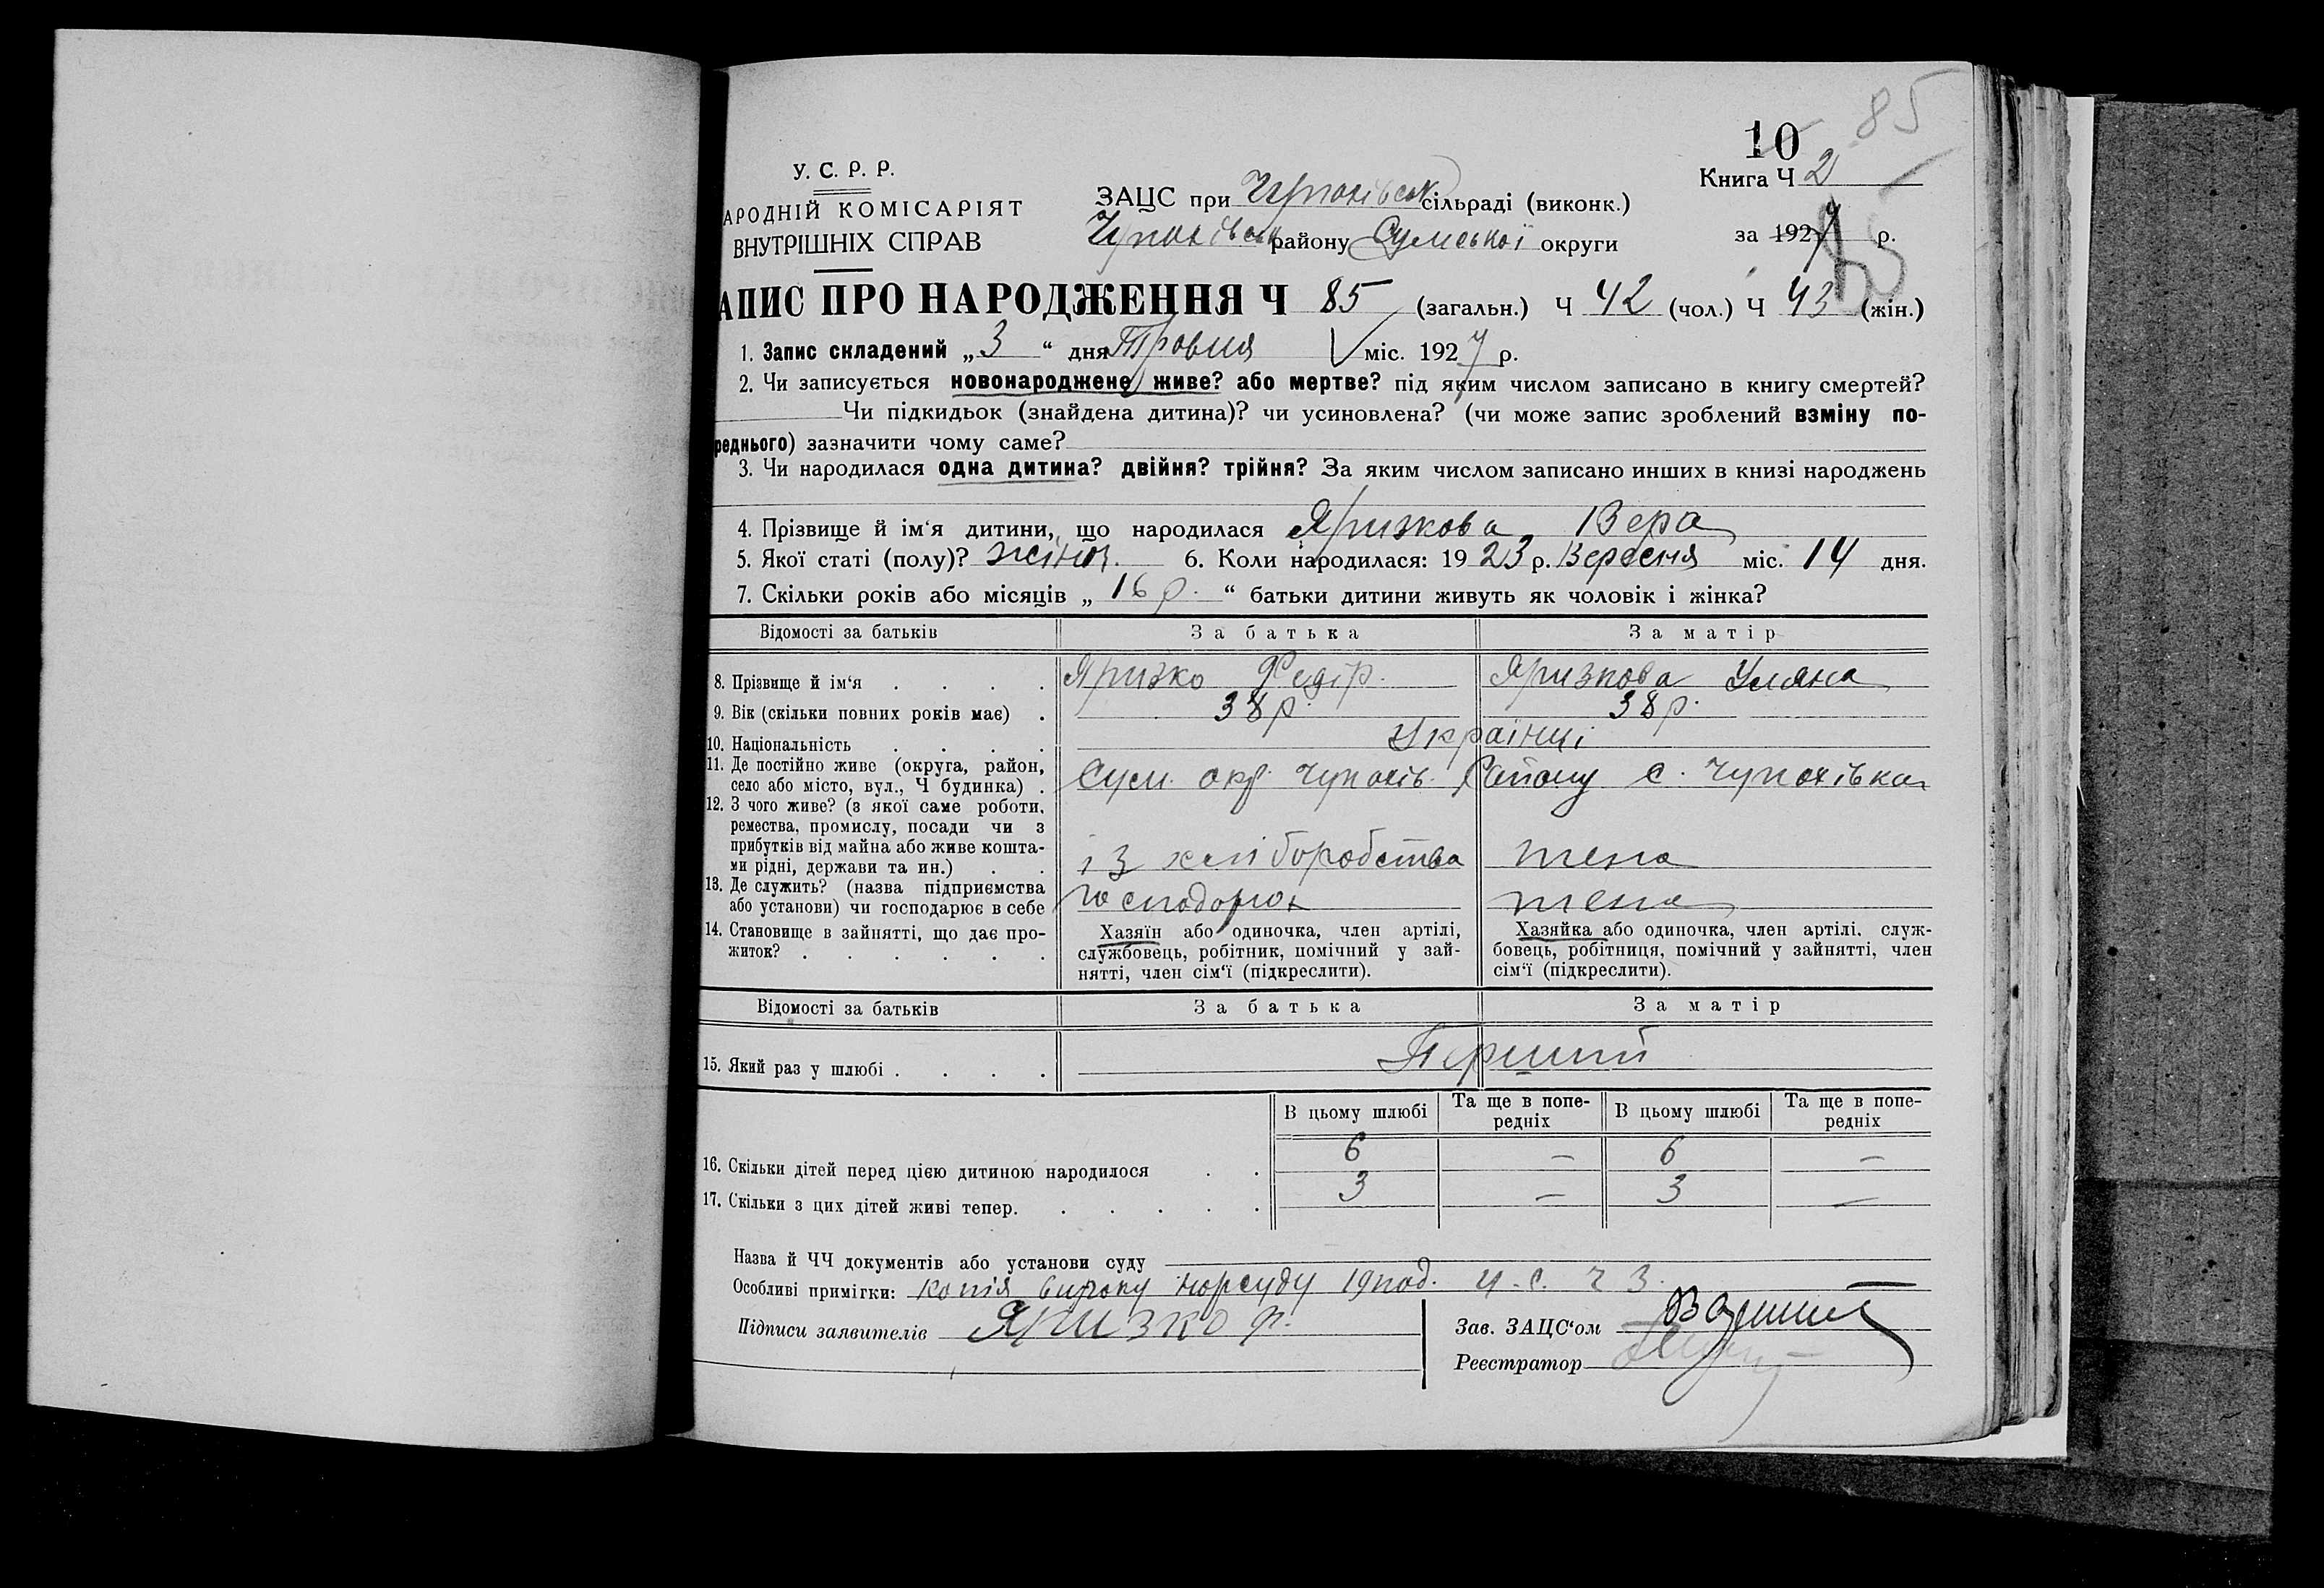 85
10
У. С. Р. Р.
АРОДНІЙ КОМІСАРІЯТ
ВНУТРІШНІХ СПРАВ
ЗАЦС при сільраді (виконк.)
району Сумської округи
Книга Ч 2
за 1927 р.
АПИС ПРО НАРОДЖЕННЯ Ч 85 (загальн.) Ч 42 (чол.) Ч 43 (жін.)
1. Запис складений „ 3 “ дня Травня міс. 1927 р.
2. Чи записується новонароджене, живе? або мертве? під яким числом записано в книгу смертей?
Чи підкидьок (знайдена дитина)? чи усиновлена? (чи може запис зроблений взміну по-
реднього) зазначити чому саме?
3. Чи народилася одна дитина? двійня? трійня? За яким числом записано инших в книзі народжень
4. Прізвище й ім‘я дитини, що народилася Яризкова Вера
5. Якої статі (полу)? жіноч. 6. Коли народилася: 1923 р. Вересня міс. 14 дня.
7. Скільки років або місяців „ 16 р. “ батьки дитини живуть як чоловік і жінка?
Відомості за батьків За батька За матір
8. Прізвище й ім‘я Яризко Федір. Яризкова Уляна
9. Вік (скільки повних років має) 38 р. 38 р.
10. Національність Українці
11. Де постійно живе (округа, район,
село або місто, вул., Ч будинка) Сум. окр. Чупахів. Району с. Чупахівка
12. З чого живе? (з якої саме роботи,
ремества, промислу, посади чи з
прибутків від майна або живе кошта-
ми рідні, держави та ин.) із хліборобства тежа
13. Де служить? (назва підприємства
або установи) чи господарює в себе господарює тежа
14. Становище в зайнятті, що дає про-
житок?
Хазяїн або одиночка, член артілі,
службовець, робітник, помічний у зай-
нятті, член сім‘ї (підкреслити).
Хазяйка або одиночка, член артілі, служ-
бовець, робітниця, помічний у зайнятті, член
сім‘ї (підкреслити).
Відомості за батьків За батька За матір
15. Який раз у шлюбі Перший
В цьому шлюбі Та ще в попе-
редніх В цьому шлюбі Та ще в попе-
редніх
16. Скільки дітей перед цією дитиною народилося 6 – 6 –
17. Скільки з цих дітей живі тепер. 3 – 3 –
Назва й ЧЧ документів або установи суду
Особливі примітки: копія вироку нарсуду
Підписи заявителів Яризко Ф.
Зав. ЗАЦС‘ом
Реєстратор